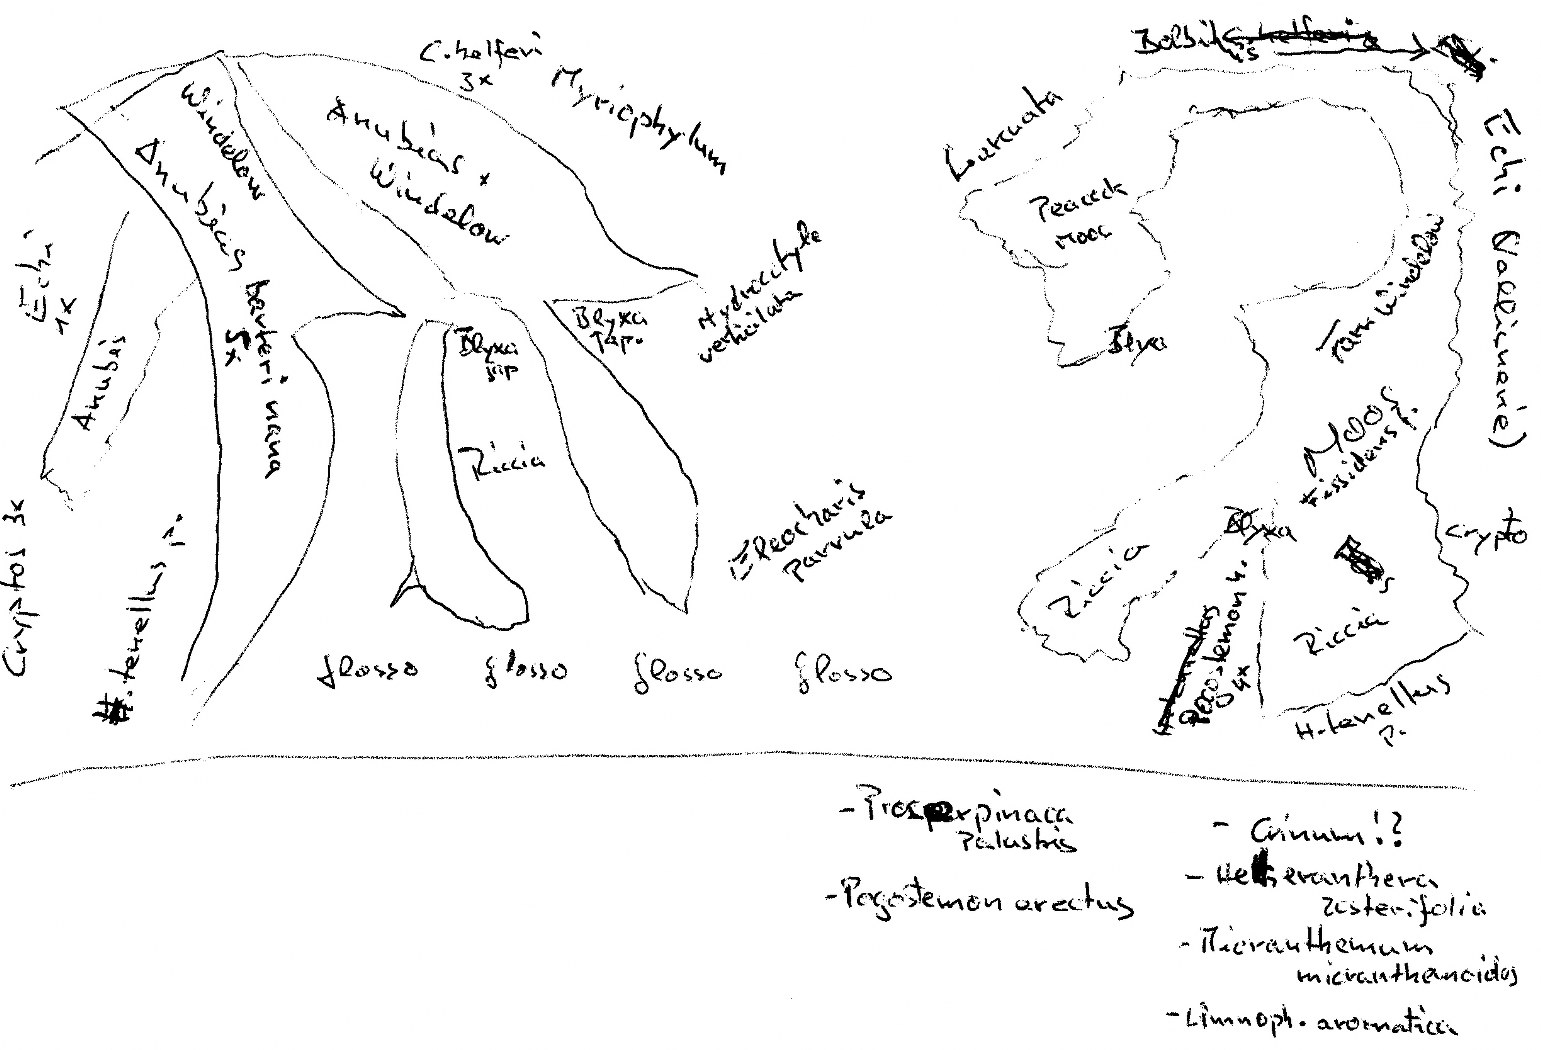 C. helferi
3x
Myriophylum
Windelow
Anubias x
Windelow
Anubias barteri nana
5x
Echi
1x
Anubias
Cryptos 3x
H. tenellus P.
Blyxa
jap
Riccia
Blyxa
Jap.
Hydrocotyle
verticilata
Eleocharis
parvula
Glosso
Glosso
Glosso
Glosso
Bolbitis
Echi
(Vallisnerie)
Peacock
Moos
Blyxa
Farn Windelow
Moos
Fissidens f.
Crypto
Blyxa
Riccia
Pogostemon h.
4x
Riccia
H. tenellus
P.
- Proserpinaca
Palustris
- Pogostemon erectus
- Crinum!?
- Hetheranthera
zosterifolia
- Micranthemum
micranthemoides
- Limnoph. aromatica